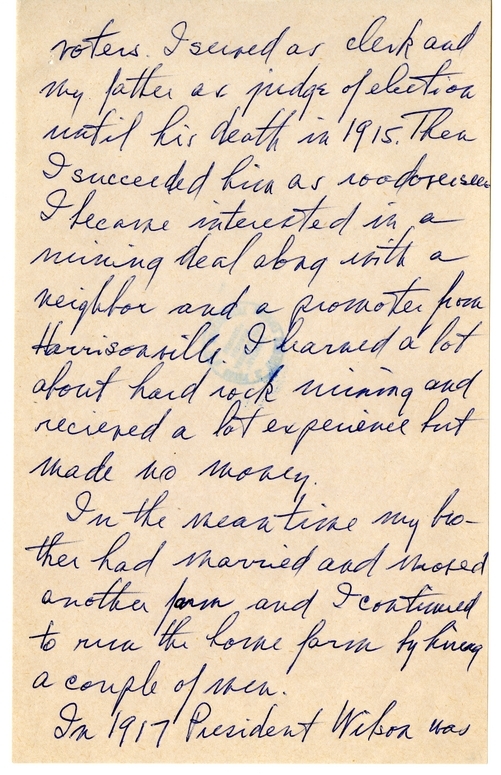 voters. I served as clerk and
my father as judge of election
until his death in 1915. Then
I succeeded him as roadoverseer
I became interested in a
mining deal along with a
neighbor and a promoter from
Harrisonville. I learned a lot
about hard rock mining and
recieved a lot experience but
made no money.
In the meantime my bro-
ther had married and moved
another farm and I continued
to run the home farm by hiring
a couple of men.
In 1917 President Wilson was